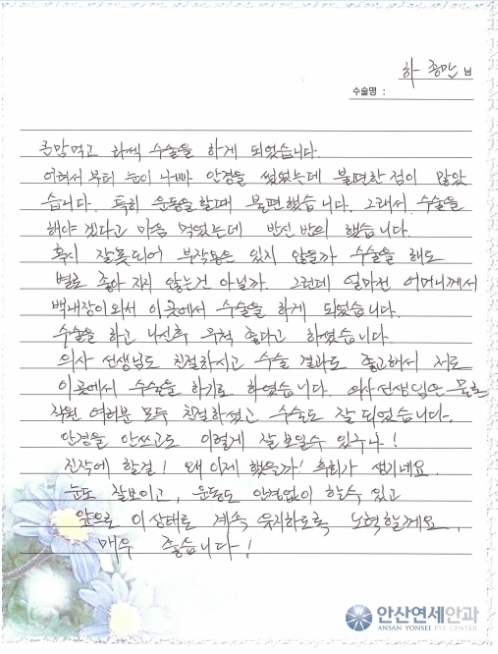 하 종만 님
수술명 :
큰맘먹고 라섹 수술을 하게 되었습니다.
어려서 부터 눈이 나빠 안경을 썼었는데 불편한 점이 많았
습니다. 특히 운동을 할때 불편했습니다. 그래서 수술을
해야 겠다고 마음 먹었는데 반신 반의 했습니다.
혹시 잘못되어 부작용은 있지 않을까 수술을 해도
별로 좋아 지지 않는건 아닐까. 그런데 얼마전 어머니께서
백내장이 와서 이곳에서 수술을 하게 되었습니다.
수술을 하고 나신후 무척 좋다고 하셨습니다.
의사 선생님도 친절하시고 수술 결과도 좋고해서 저도
이곳에서 수술을 하기로 하였습니다. 의사선생님은 물론
직원 여러분 모두 친절하셨고 수술도 잘 되었습니다.
안경을 안쓰고도 이렇게 잘 보일수 있구나!
진작에 할걸! 왜 이제 했을까! 후회가 생기네요.
눈도 잘보이고, 운동도 안경없이 할수 있고
앞으로 이 상태로 계속 유지하도록 노력할께요.
매우 좋습니다!
안산연세안과
ANSAN YONSEI EYE CENTER